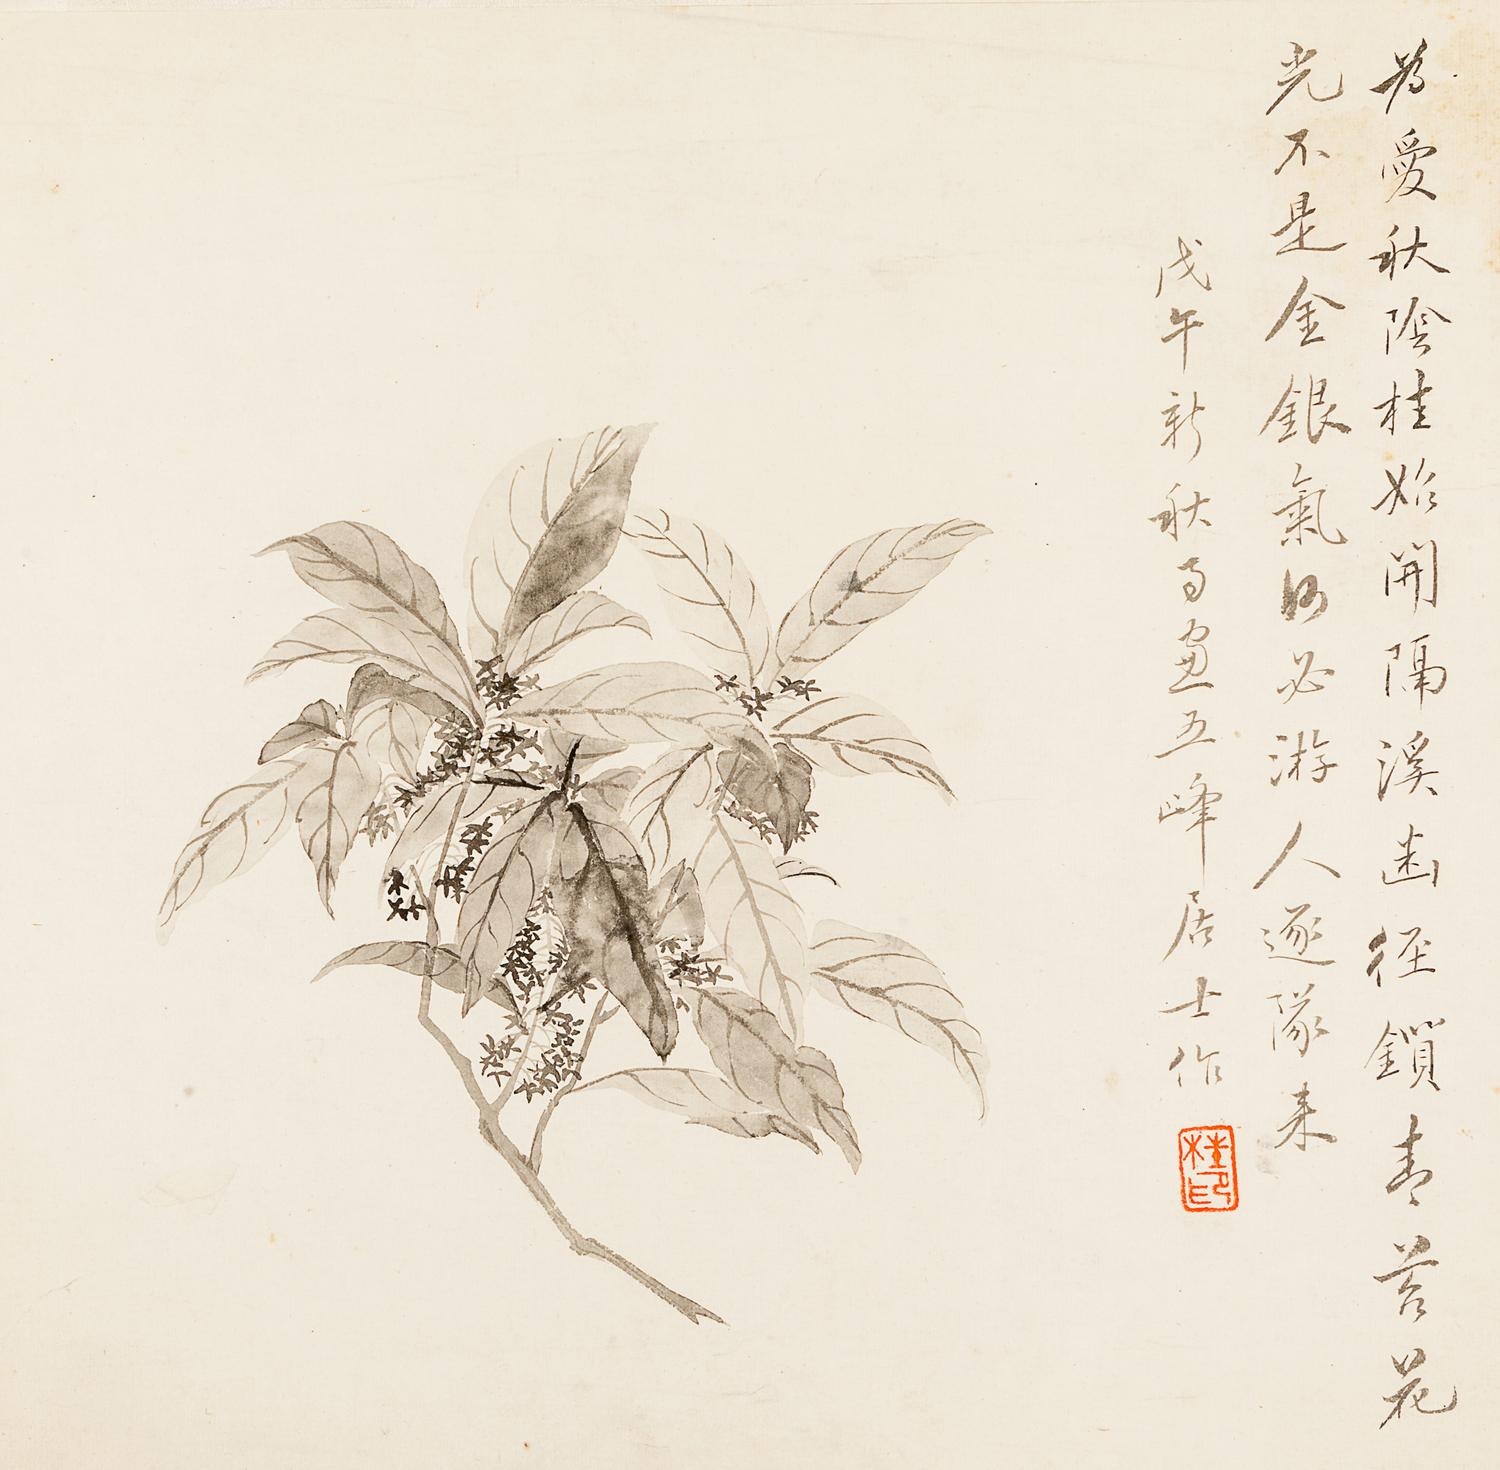 為愛秋陰桂始開隔溪幽徑鎖青苔花
光不是金銀氣何必游人逐隊來
戊午新秋五峰居士作
桂印